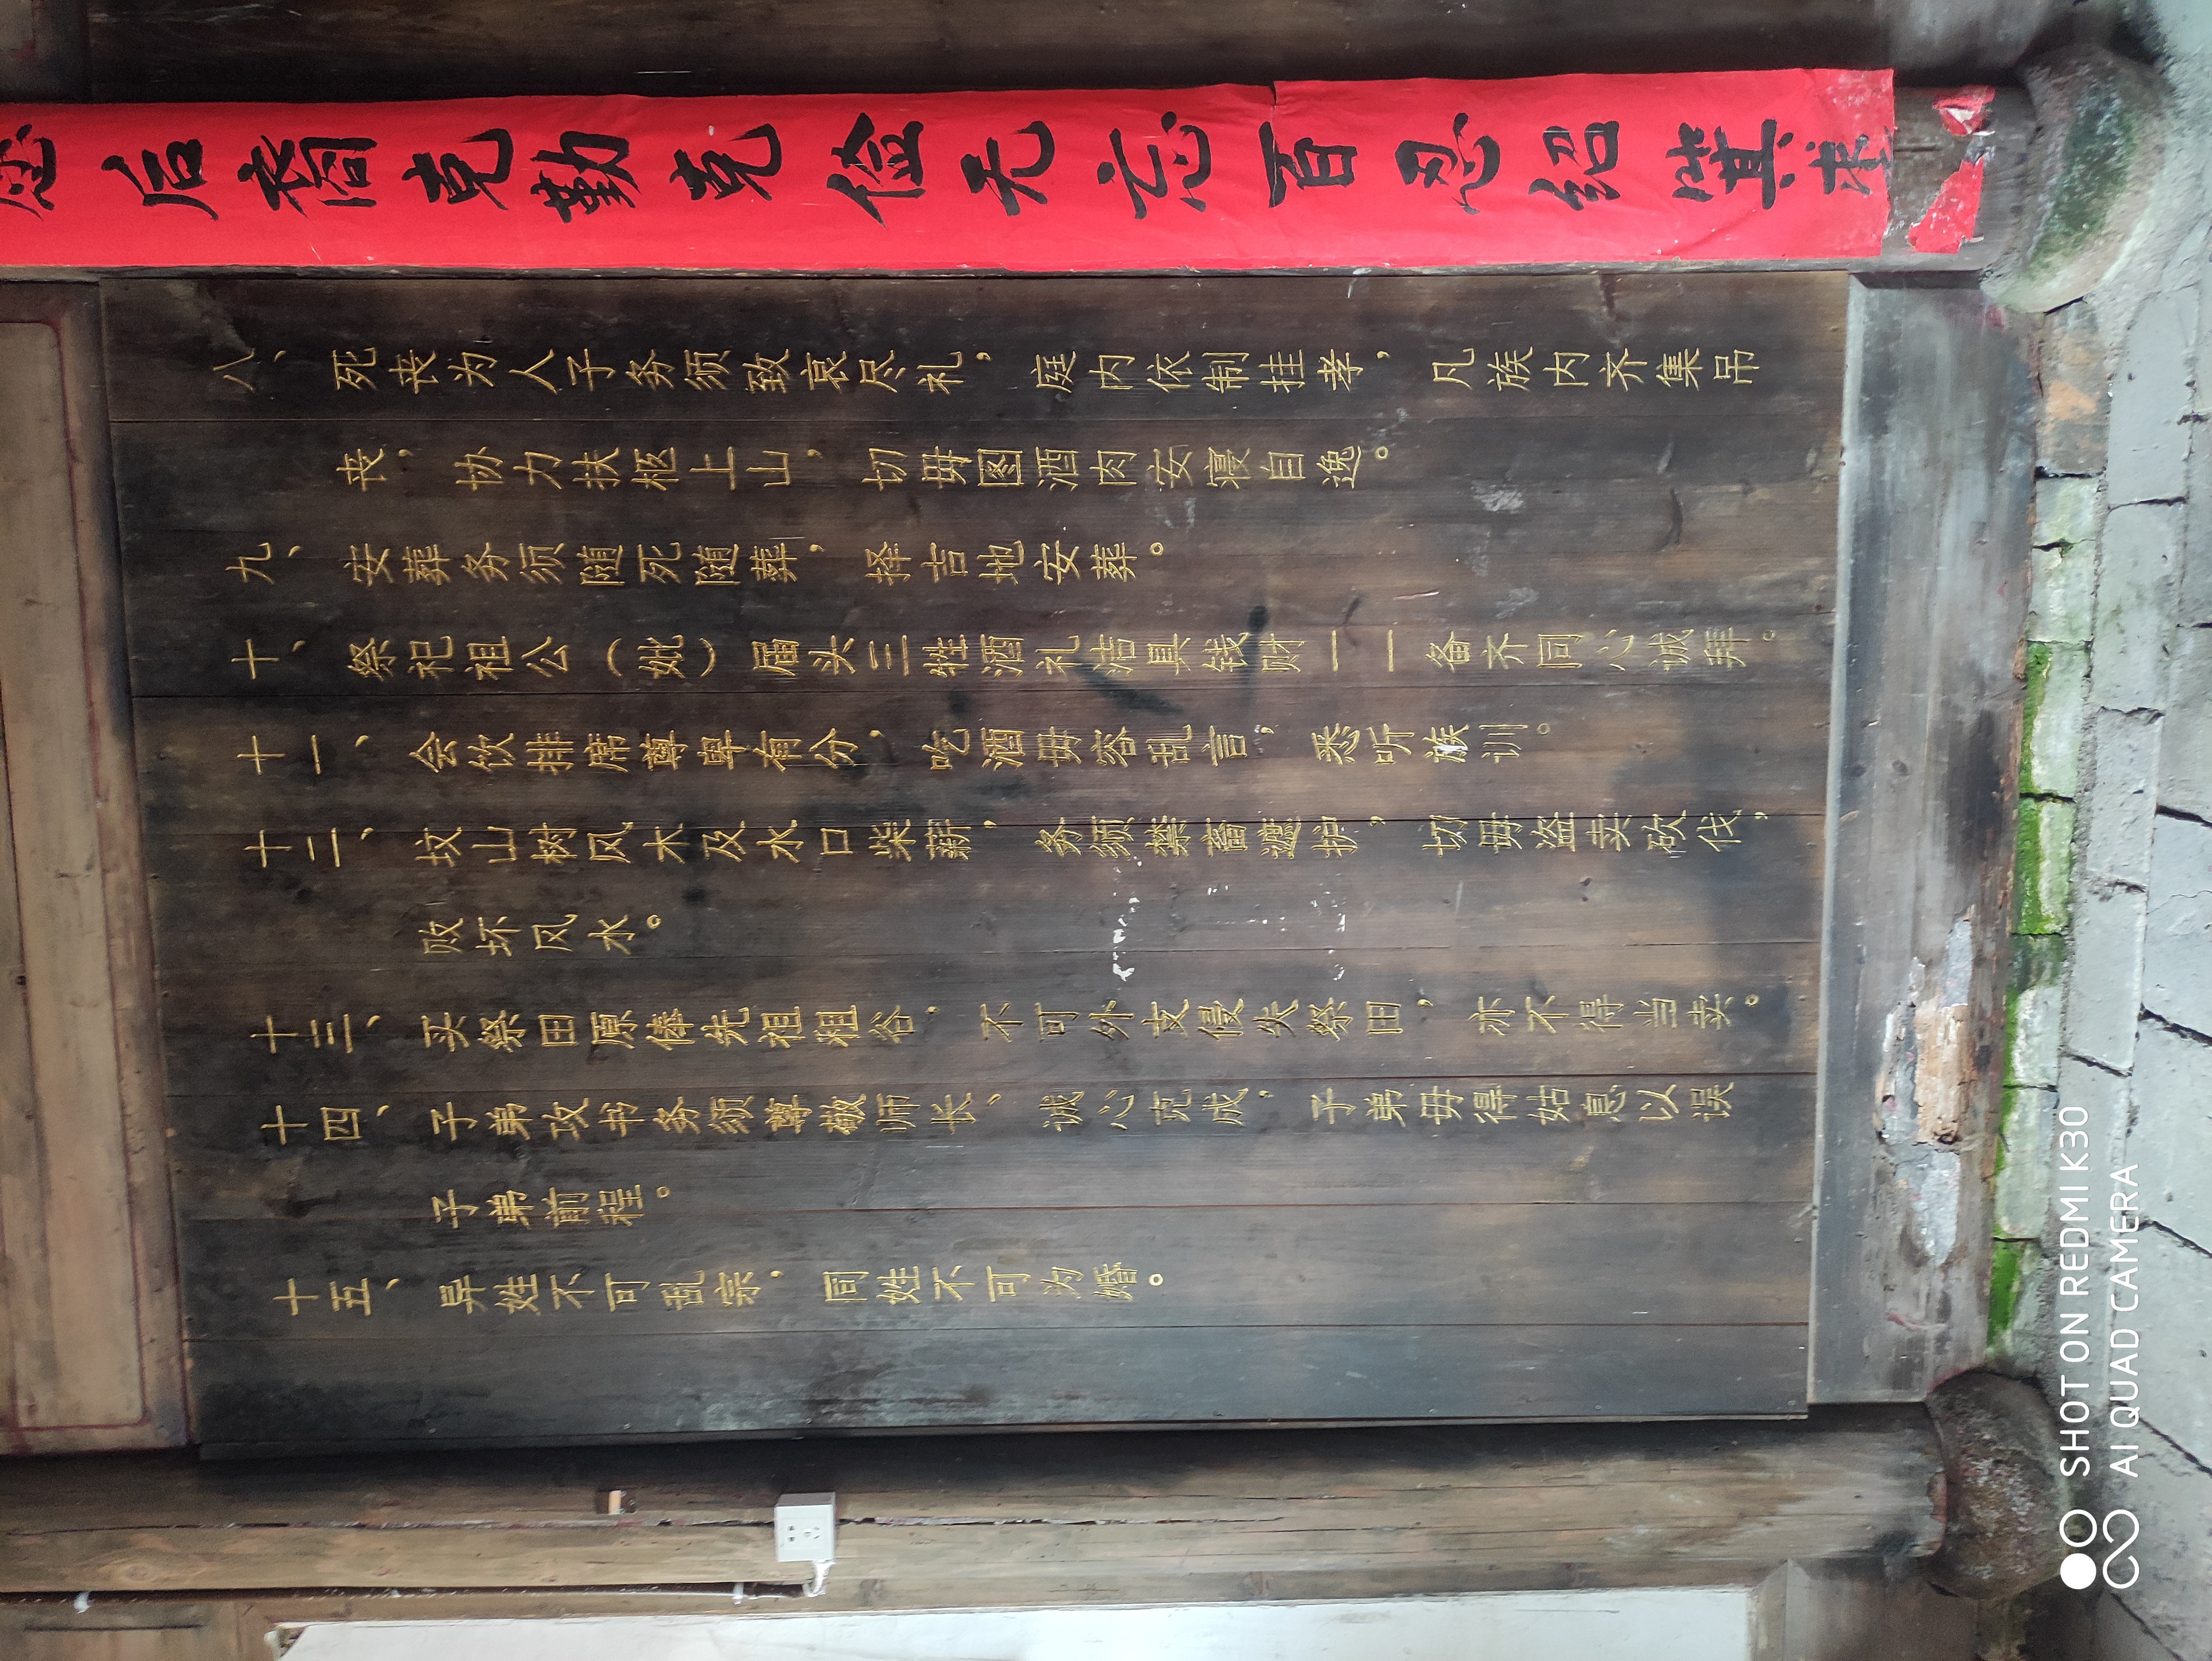 后裔克勤克俭无忘百忍绍箕裘
八、死丧为人子务须致哀尽礼，庭内依制挂孝，凡族内齐集吊
丧，协力扶柩上山，切毋图酒肉安寝自逸。
九、安葬务须随死随葬，择吉地安葬。
十、祭祀祖公（妣）届头三牲酒礼洁具钱财一一备齐同心诚拜。
十一、会饮排席尊卑有分，吃酒毋容乱言，悉听族训。
十二、坟山树风木及水口柴薪，务须禁蓄遮护，切毋盗卖砍伐，
败坏风水。
十三、买祭田原俸先祖租谷，不可外支侵失祭田，亦不得当卖。
十四、子弟攻书务须尊敬师长、诚心克成，子弟毋得姑息以误
子弟前程。
十五、异姓不可乱宗，同姓不可为婚。
SHOT ON REDMI K30
AI QUAD CAMERA